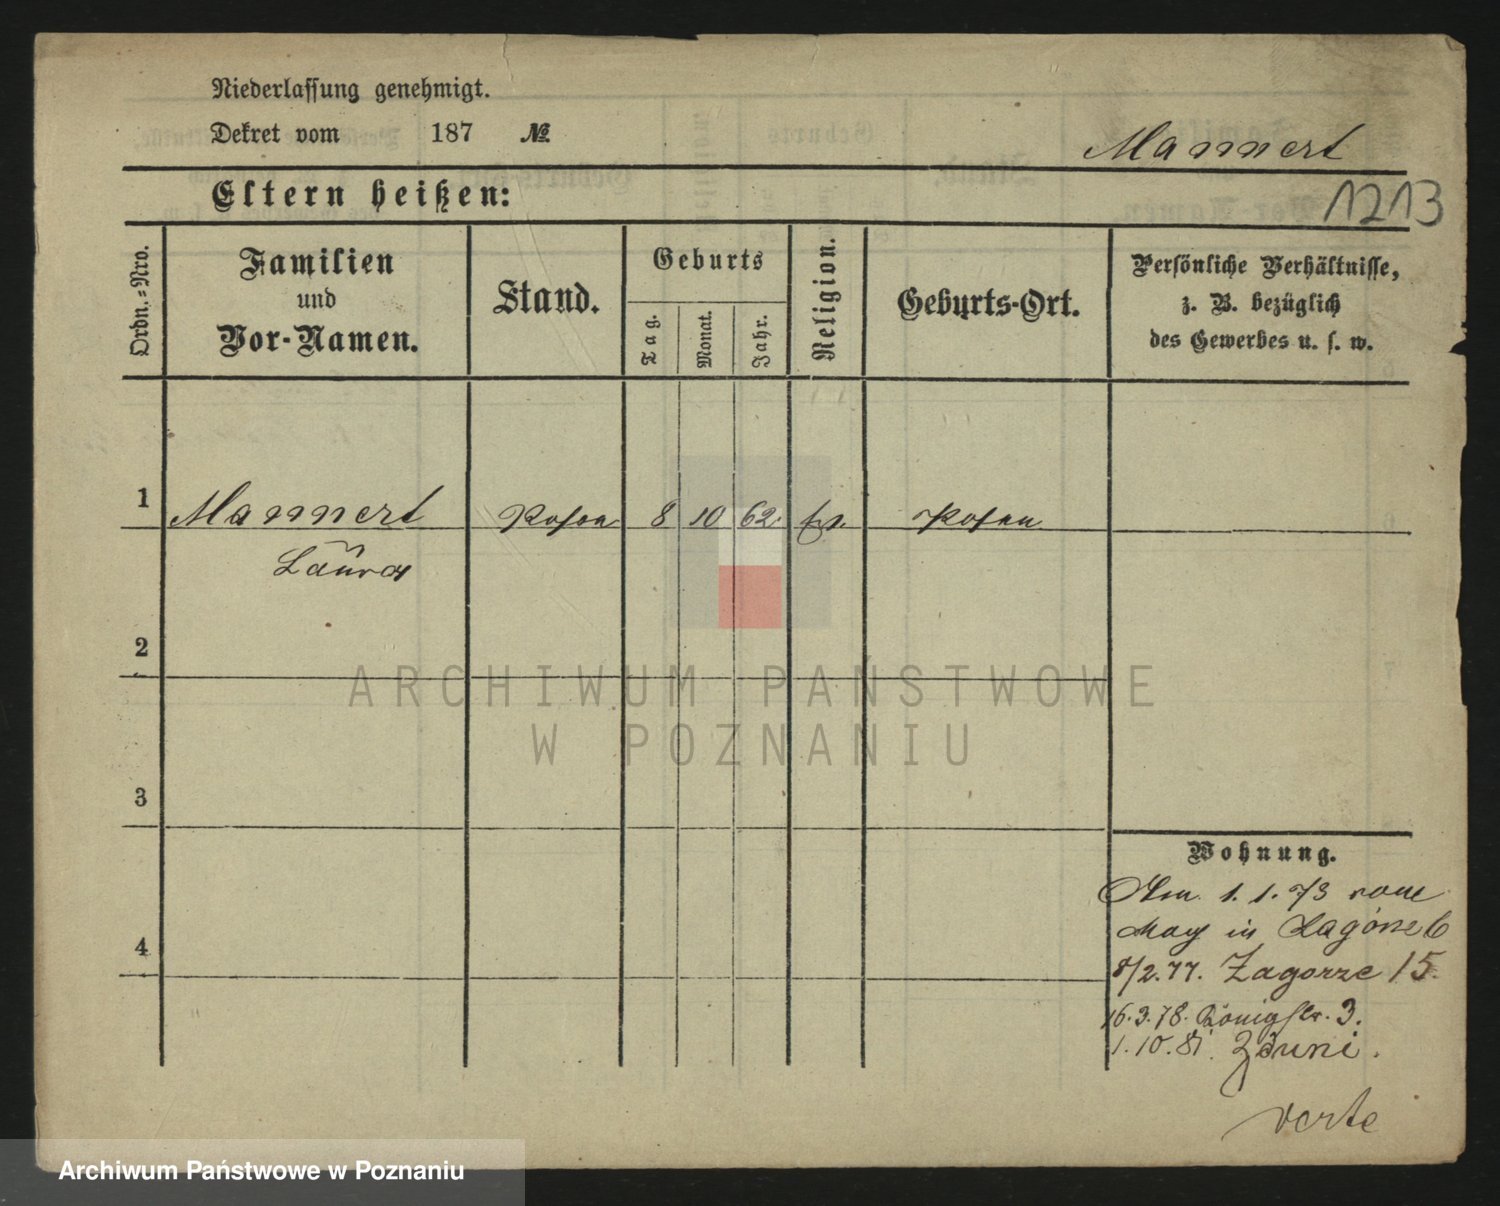 Niederlassung genehmigt.
Dekret vom 187 №
Mannert
Eltern heißen:
1213
Ordn.=Nro.
Familien
und
Vor-Namen.
Stand.
Geburts
Tag.
Monat.
Jahr.
Religion.
Geburts-Ort.
Persönliche Verhältnisse,
z. B. bezüglich
des Gewerbes u. s. w.
1 Mannert Posen 8 10 62. Posen
Laura
2
3
4
Wohnung.
1. 1. 73
May in Zagorze 6
8/2.77. Zagorze 15.
16.3.78. Königstr. 3.
1.10.81.
verte
ARCHIWUM PAŃSTWOWE
W POZNANIU
Archiwum Państwowe w Poznaniu